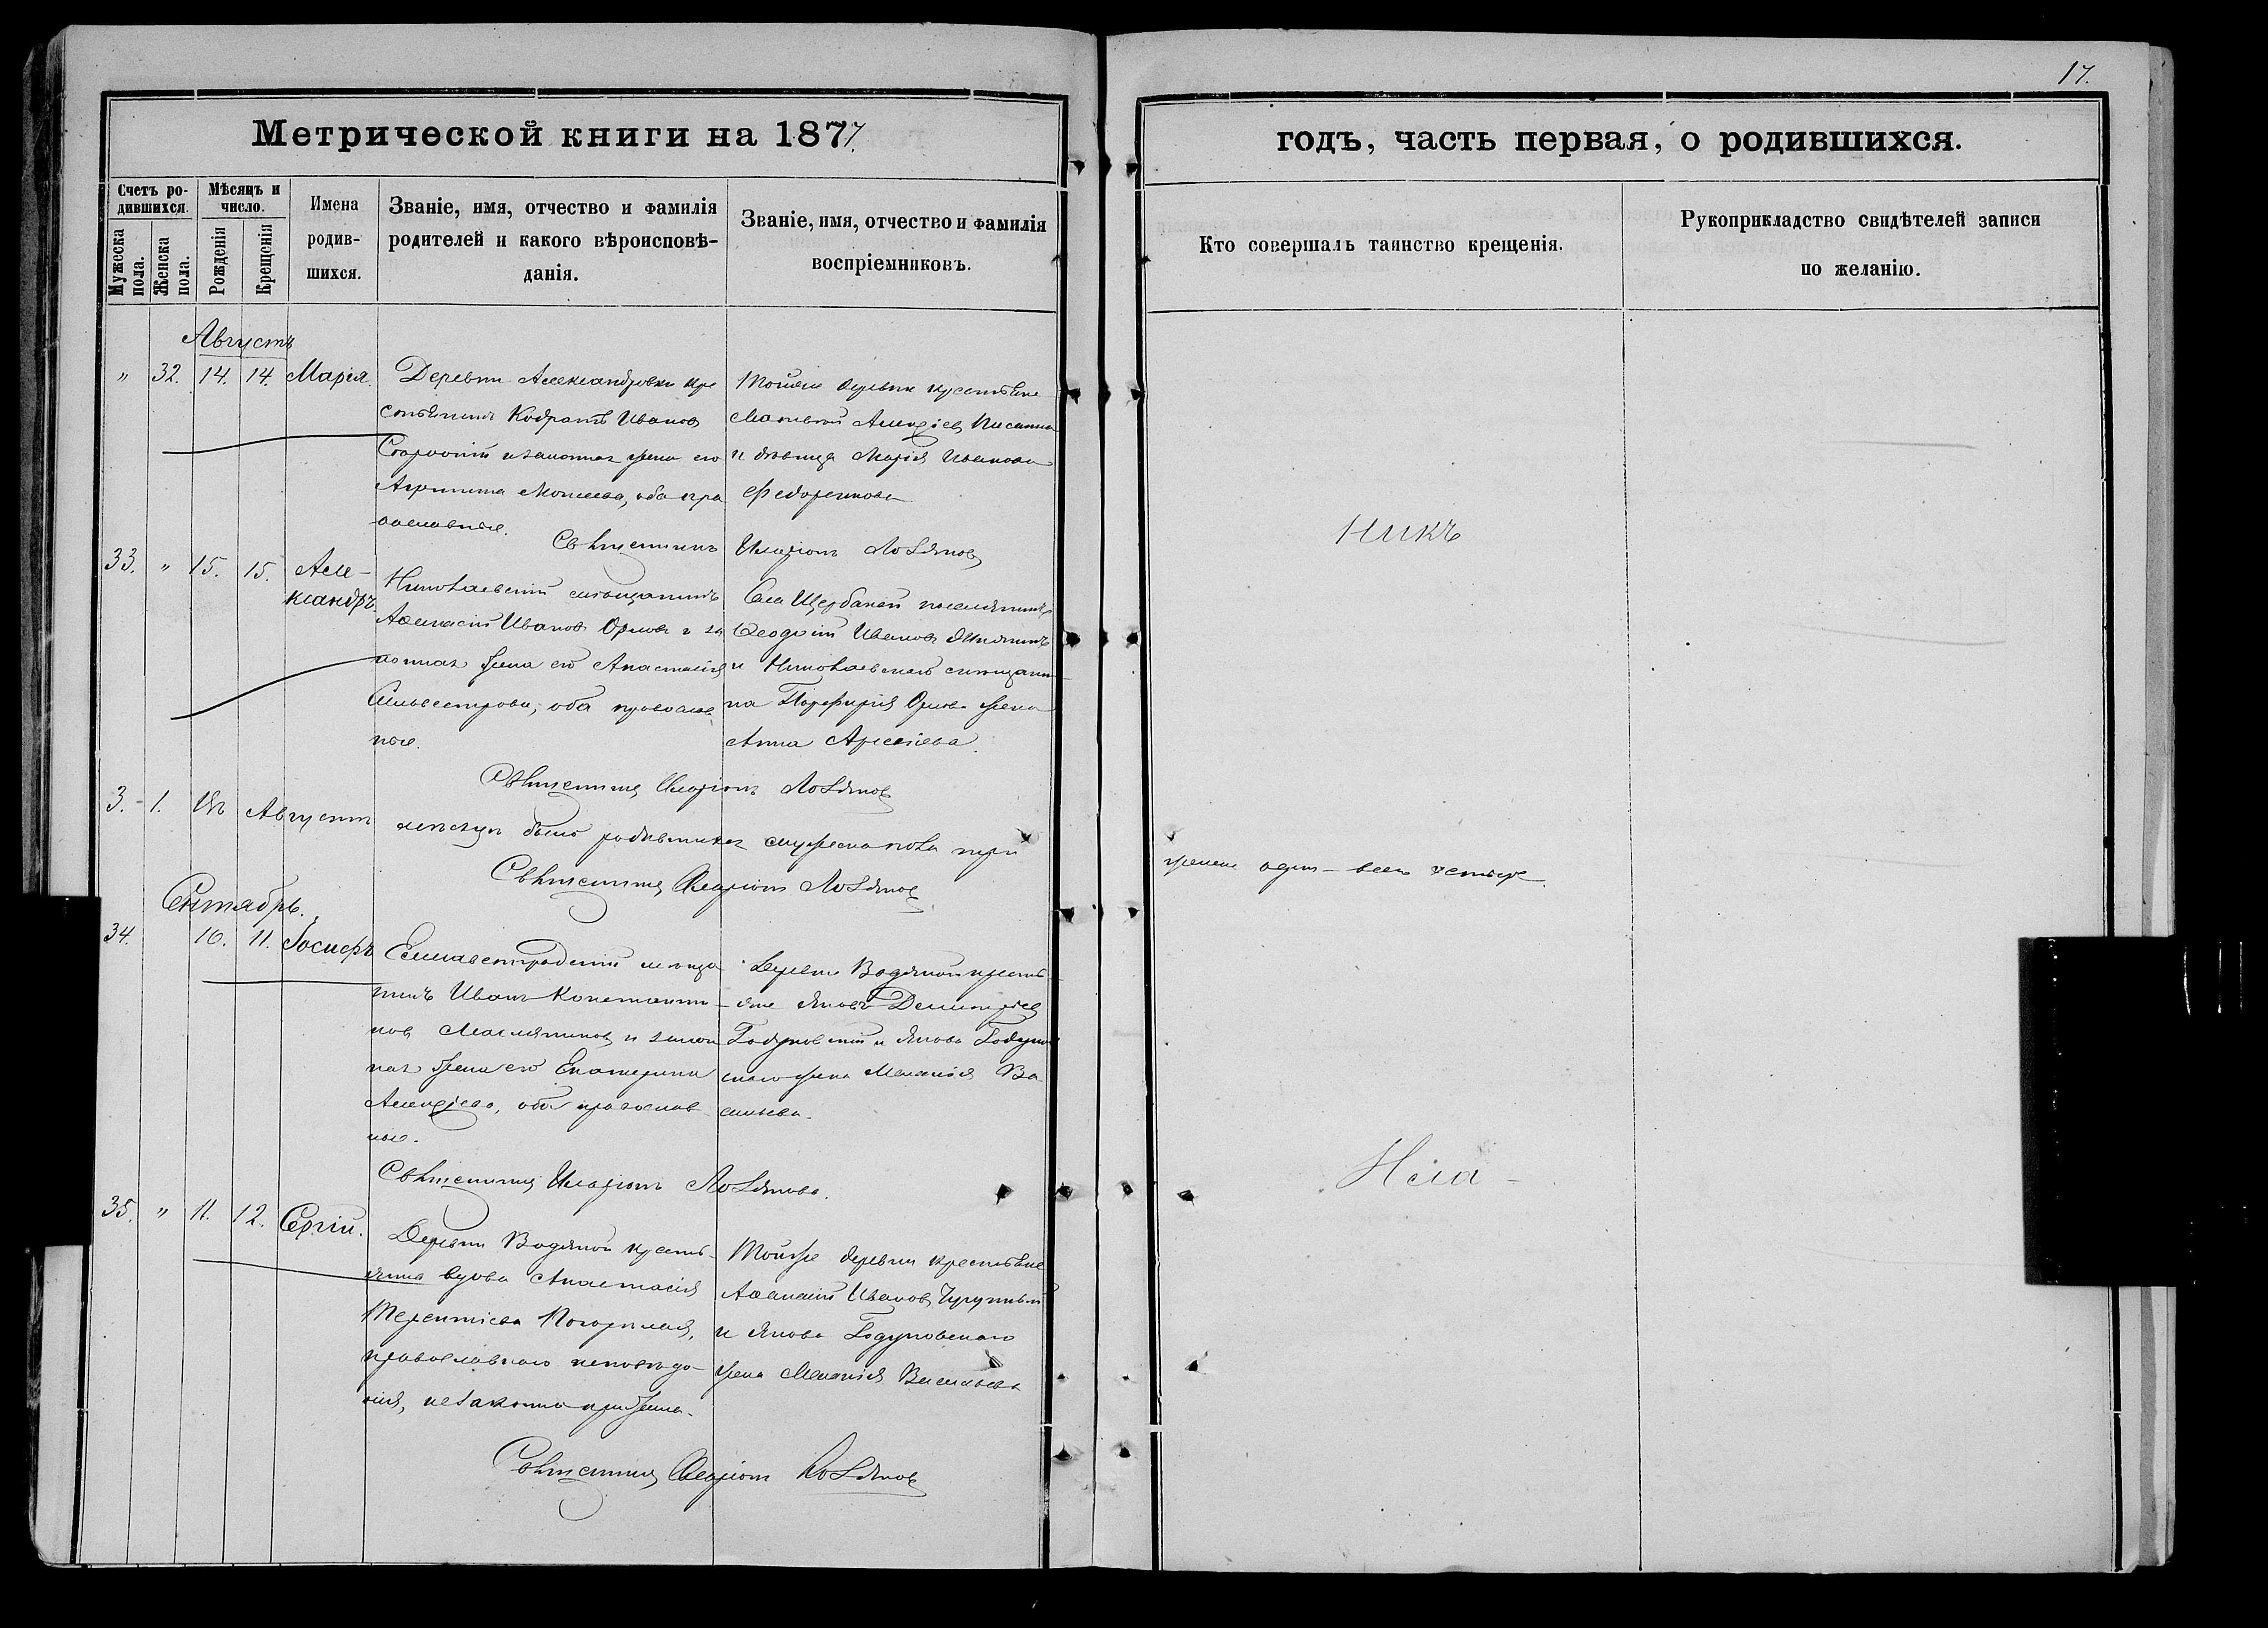 17.
Метрической книги на 1877.
годъ, часть первая, о родившихся.
Счетъ родившихся.
Мужеска пола.
Женска пола.
Мѣсяцъ и число.
Рожденія
Крещенія
Имена родив-
шихся.
Званіе, имя, отчество и фамилія
родителей и какого вѣроисповѣ-
данія.
Званіе, имя, отчество и фамилія
воспріемниковъ.
Кто совершалъ таинство крещенія.
Рукоприкладство свидѣтелей записи
по желанію.
Августъ
" 32. 14. 14. Марія.
Деревни Александровки кре
стьянинъ Кодратъ Иванов
и законная жена его
Моисеева, оба пра
вославные.
Тойже деревни крестьяне
Алексіев
и дѣвица Марія Иванова
Федоренкова
Священникъ Иларіонъ Лозянов
33. " 15. 15. Але-
ксандръ.
Николаевскій мѣщанинъ
Аѳанасій Иванов Орлов и за
конная жена его Анастасія
Сильвестрова, оба православ
ные.
Села Щербаней поселянинъ
Иванов
и Николаевскаго мѣщани
на Порфирія Орлова жена
Анна
Священникъ Иларіонъ Лозянов
3. - 1. Въ Августѣ мѣсяцѣ было родившихся мужеска пола три
женска один - всего четыре.
Священникъ Иларіонъ Лозянов
Сентябрь.
34. 10. 11. Іосифъ
Елисаветградскій мѣща
нинъ Иванъ Константи
нов Маслянников и закон
ная жена его Екатерина
Алексіева, оба православ
ные.
Деревни Водяной кресть
яне Яковъ Димитріев
Годуновскій и Якова Годунов
скаго жена Меланія Ва
сильева.
Священникъ Иларіонъ Лозянов.
35. " 11. 12. Сергій.
Деревни Водяной кресть-
янка вдова Анастасія
Терентіева
православнаго исповѣда-
нія, незаконно прижила.
Тойже деревни крестьяне
Аѳанасій Иванов
и Якова Годуновскаго
жена Меланія Васильева
Священникъ Иларіонъ Лозянов